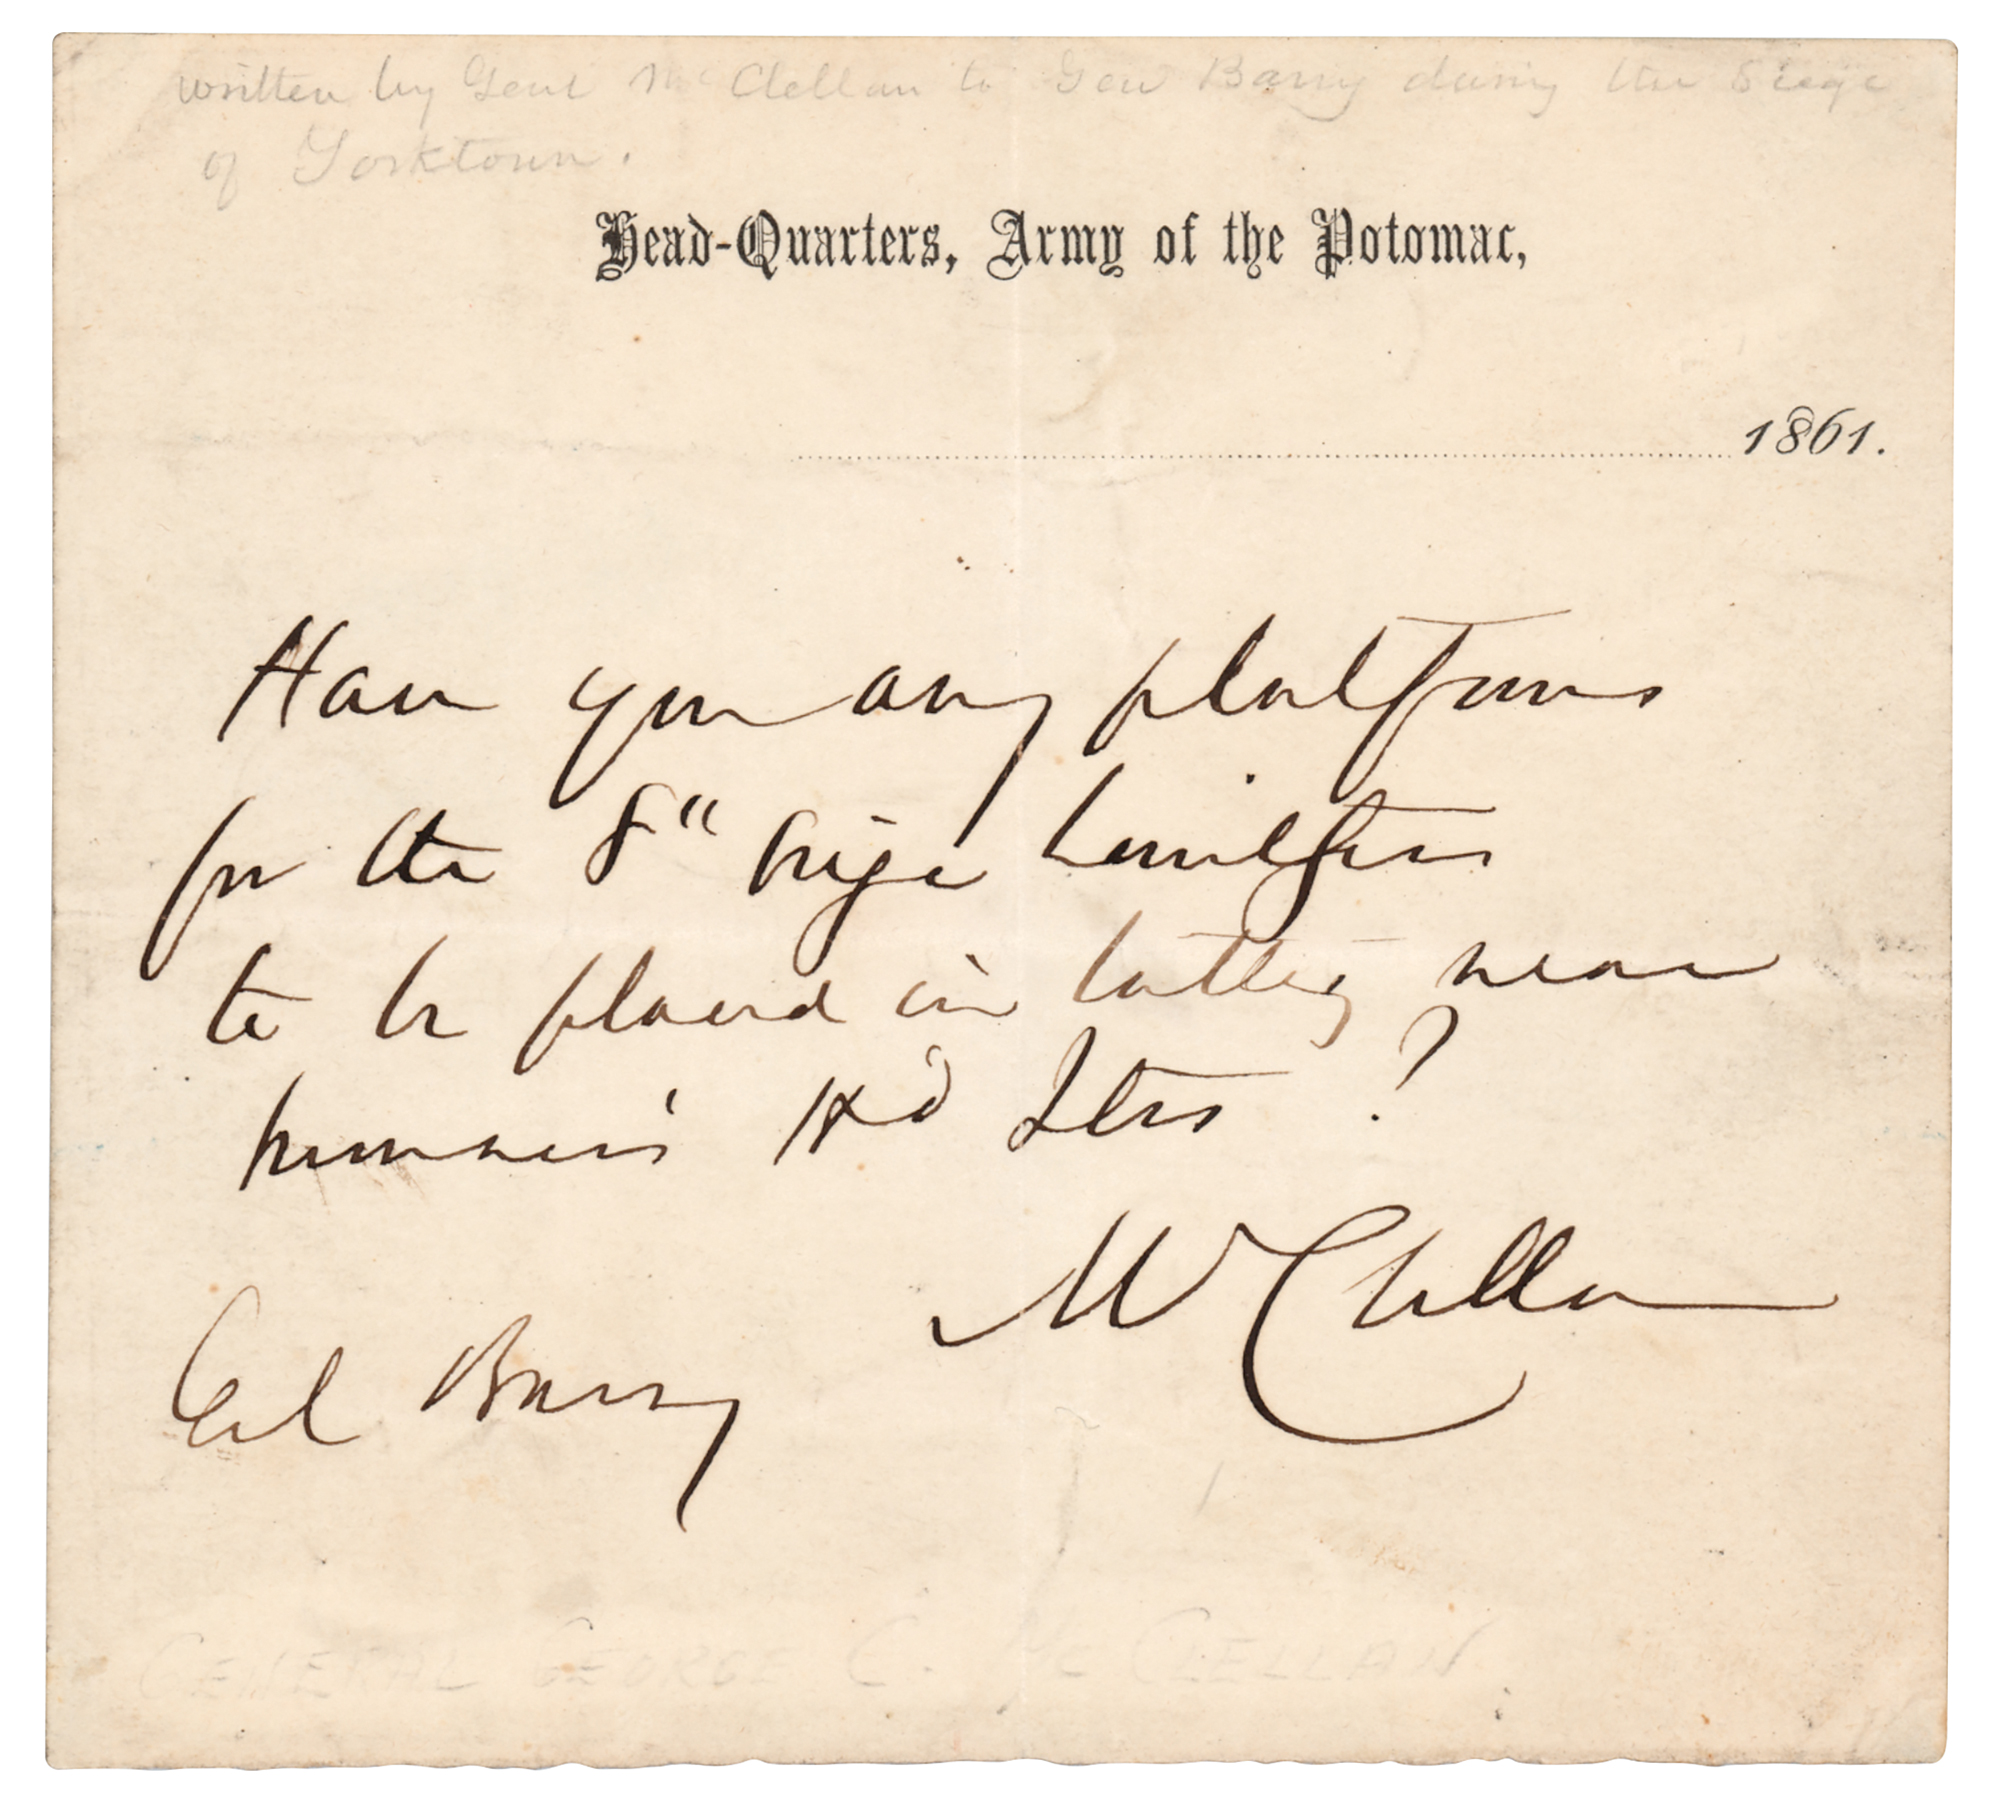 written by Genl McClellan to Gen Barry during the Siege
of Yorktown.
Head-Quarters, Army of the Potomac,
1861.
Have you any platforms
for the 8" siege howitzers
to be placed in battery near
Sumner's Hd Qtrs ?
McClellan
Col Barry
GENERAL GEORGE C. McCLELLAN